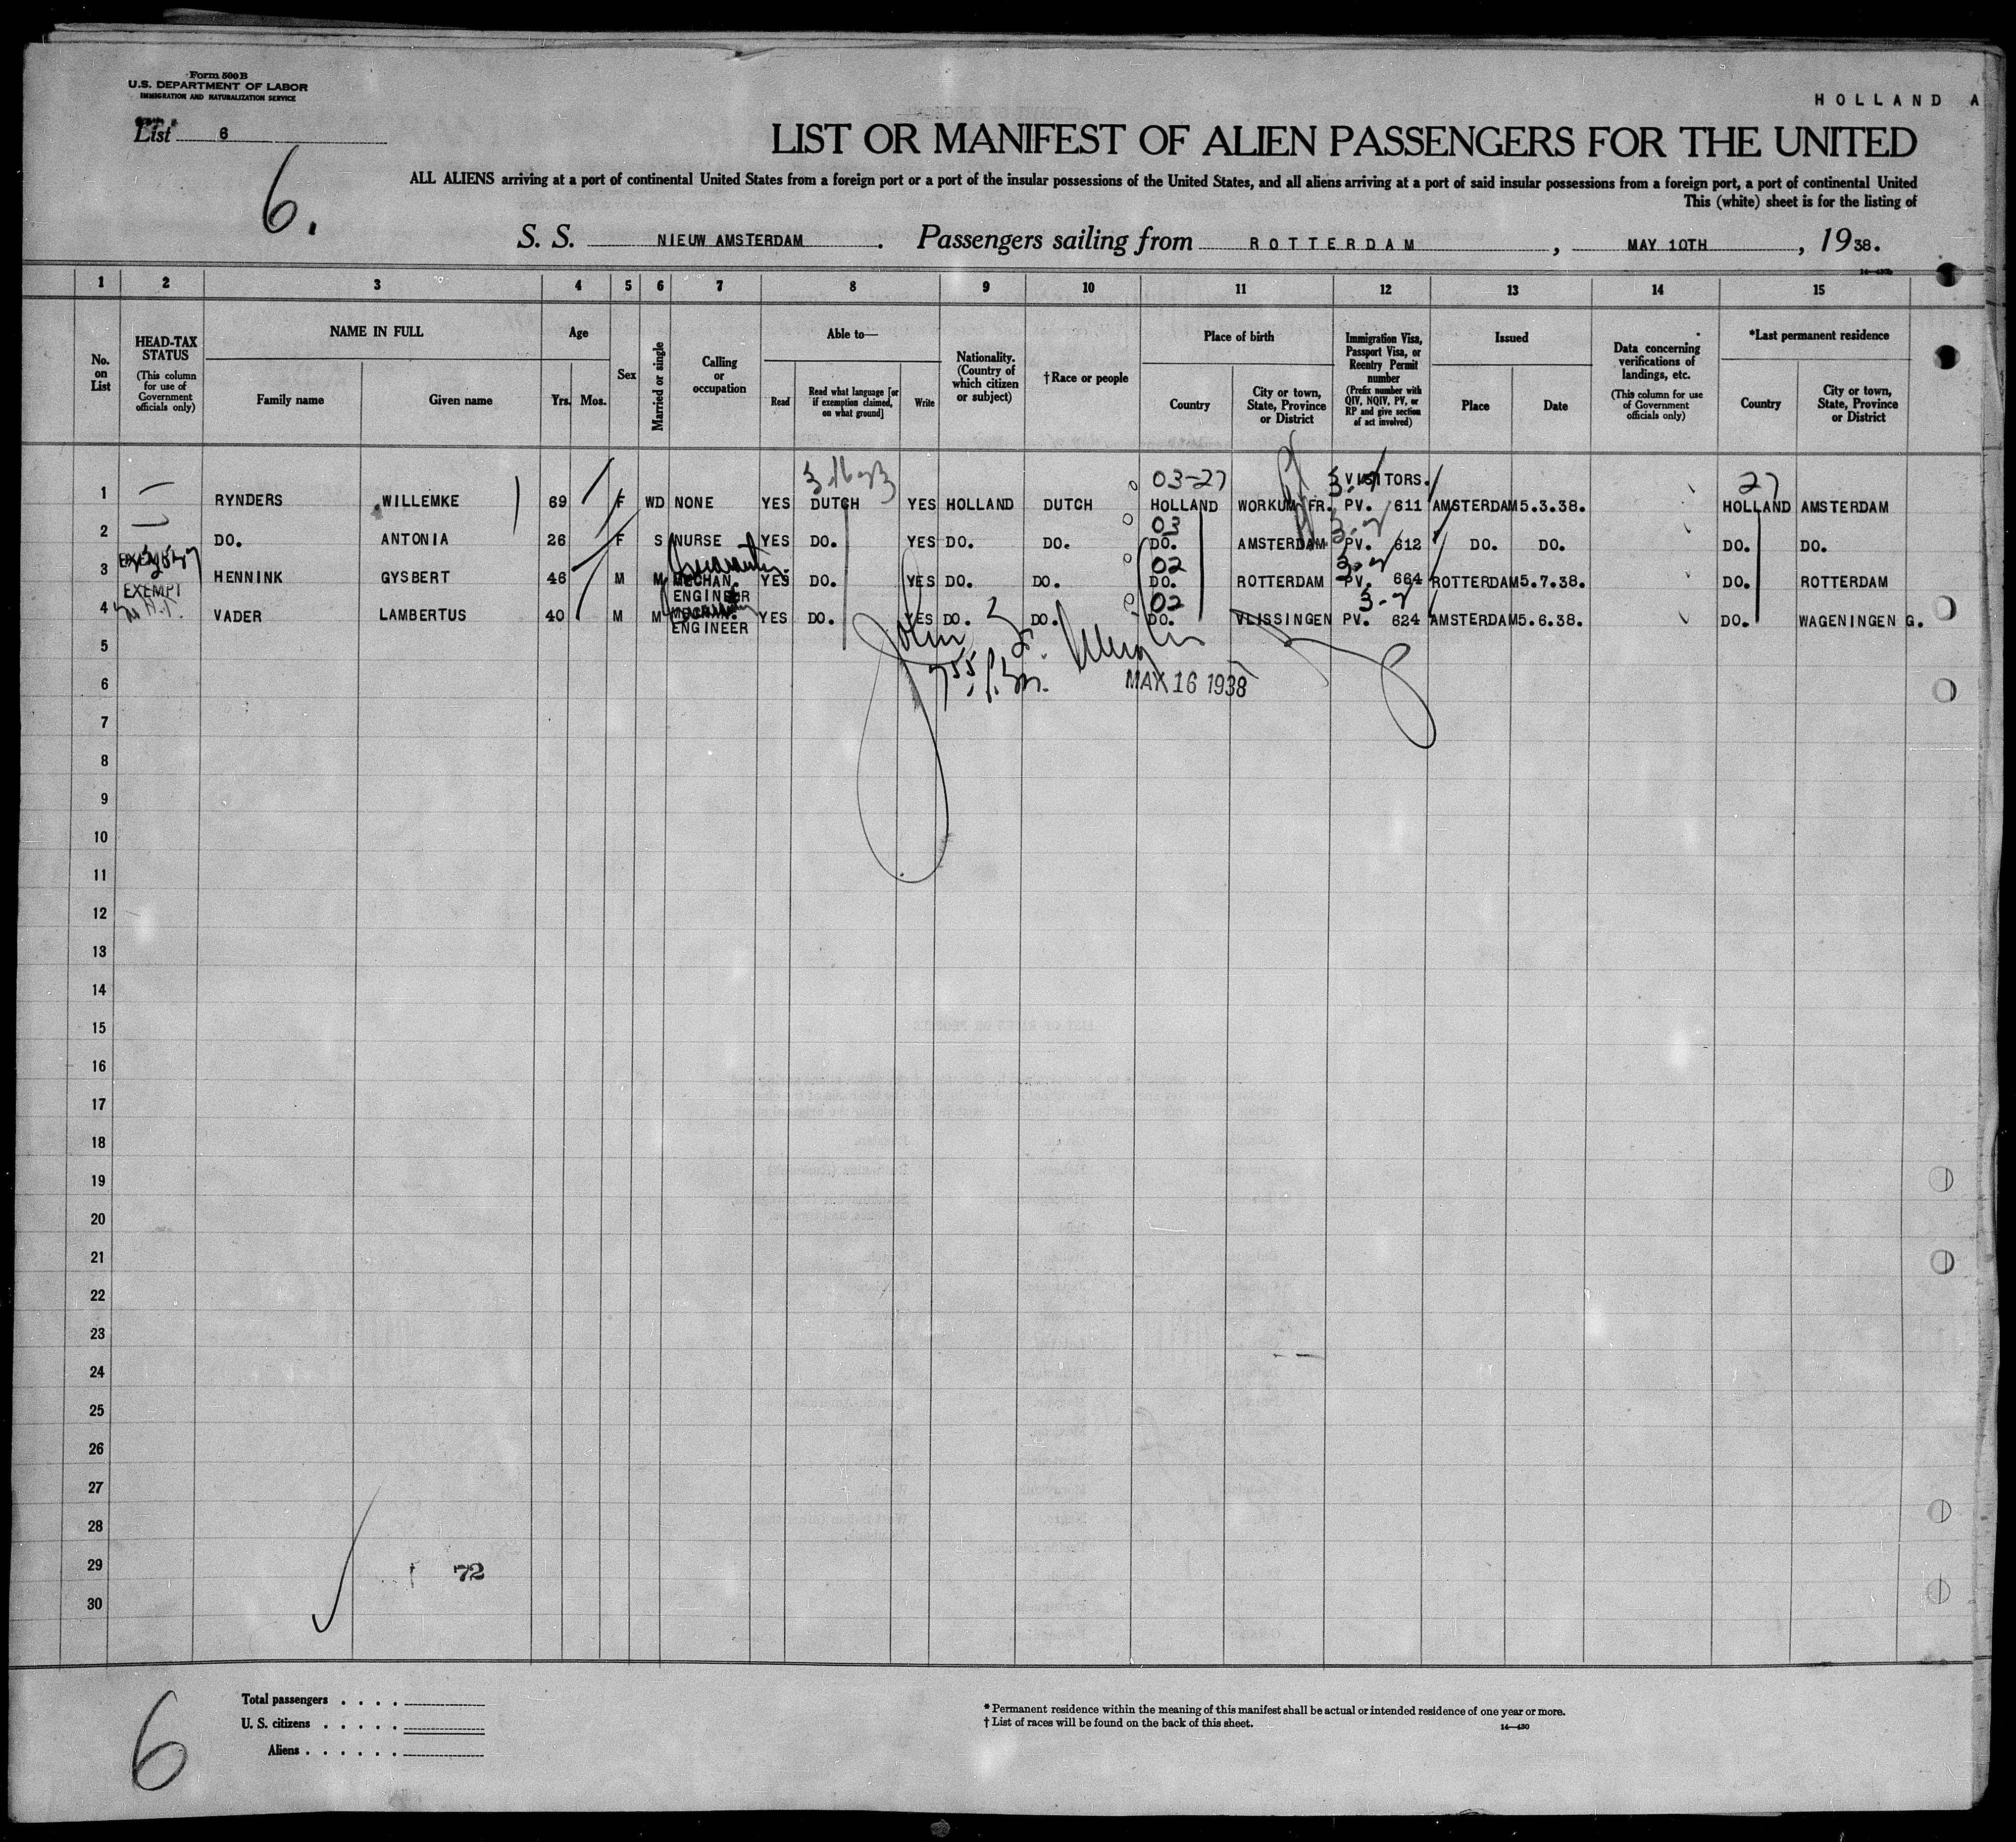 Form 500 B
U.S. DEPARTMENT OF LABOR
IMMIGRATION AND NATURALIZATION SERVICE
HOLLAND A
List 6
6.
LIST OR MANIFEST OF ALIEN PASSENGERS FOR THE UNITED
ALL ALIENS arriving at a port of continental United States from a foreign port or a port of the insular possessions of the United States, and all aliens arriving at a port of said insular possessions from a foreign port, a port of continental United
This (white) sheet is for the listing of
S. S. NIEUW AMSTERDAM. Passengers sailing from ROTTERDAM, MAY 10TH, 1938.
1 2 3 4 5 6 7 8 9 10 11 12 13 14 15
No. on List
HEAD-TAX STATUS (This column for use of Government officials only)
NAME IN FULL
Family name
Given name
Age
Yrs. Mos.
Sex
Married or single
Calling or occupation
Able to—
Read
Read what language [or if exemption claimed, on what ground]
Write
Nationality. (Country of which citizen or subject)
†Race or people
Place of birth
Country
City or town, State, Province or District
Immigration Visa, Passport Visa, or Reentry Permit number (Prefix number with QIV, NQIV, PV, or RP and give section of act involved)
Issued
Place
Date
Data concerning verifications of landings, etc. (This column for use of Government officials only)
*Last permanent residence
Country
City or town, State, Province or District
03-27 VISITORS. 27
1 RYNDERS WILLEMKE 69 F WD NONE YES DUTCH YES HOLLAND DUTCH HOLLAND WORKUM FR. PV. 611 AMSTERDAM 5.3.38. HOLLAND AMSTERDAM
03
2 DO. ANTONIA 26 F S NURSE YES DO. YES DO. DO. DO. AMSTERDAM PV. 612 DO. DO. DO. DO.
EXEMPT 02
3 HENNINK GYSBERT 46 M M MECHAN. ENGINEER YES DO. YES DO. DO. DO. ROTTERDAM PV. 664 ROTTERDAM 5.7.38. DO. ROTTERDAM
EXEMPT 02
4 VADER LAMBERTUS 40 M M MECHAN. ENGINEER YES DO. YES DO. DO. DO. VLISSINGEN PV. 624 AMSTERDAM 5.6.38. DO. WAGENINGEN G.
John
MAY 16 1938
5
6
7
8
9
10
11
12
13
14
15
16
17
18
19
20
21
22
23
24
25
26
27
28
29
72
30
6
Total passengers . . . .
U. S. citizens . . . . .
Aliens . . . . . .
* Permanent residence within the meaning of this manifest shall be actual or intended residence of one year or more.
† List of races will be found on the back of this sheet.
14—430